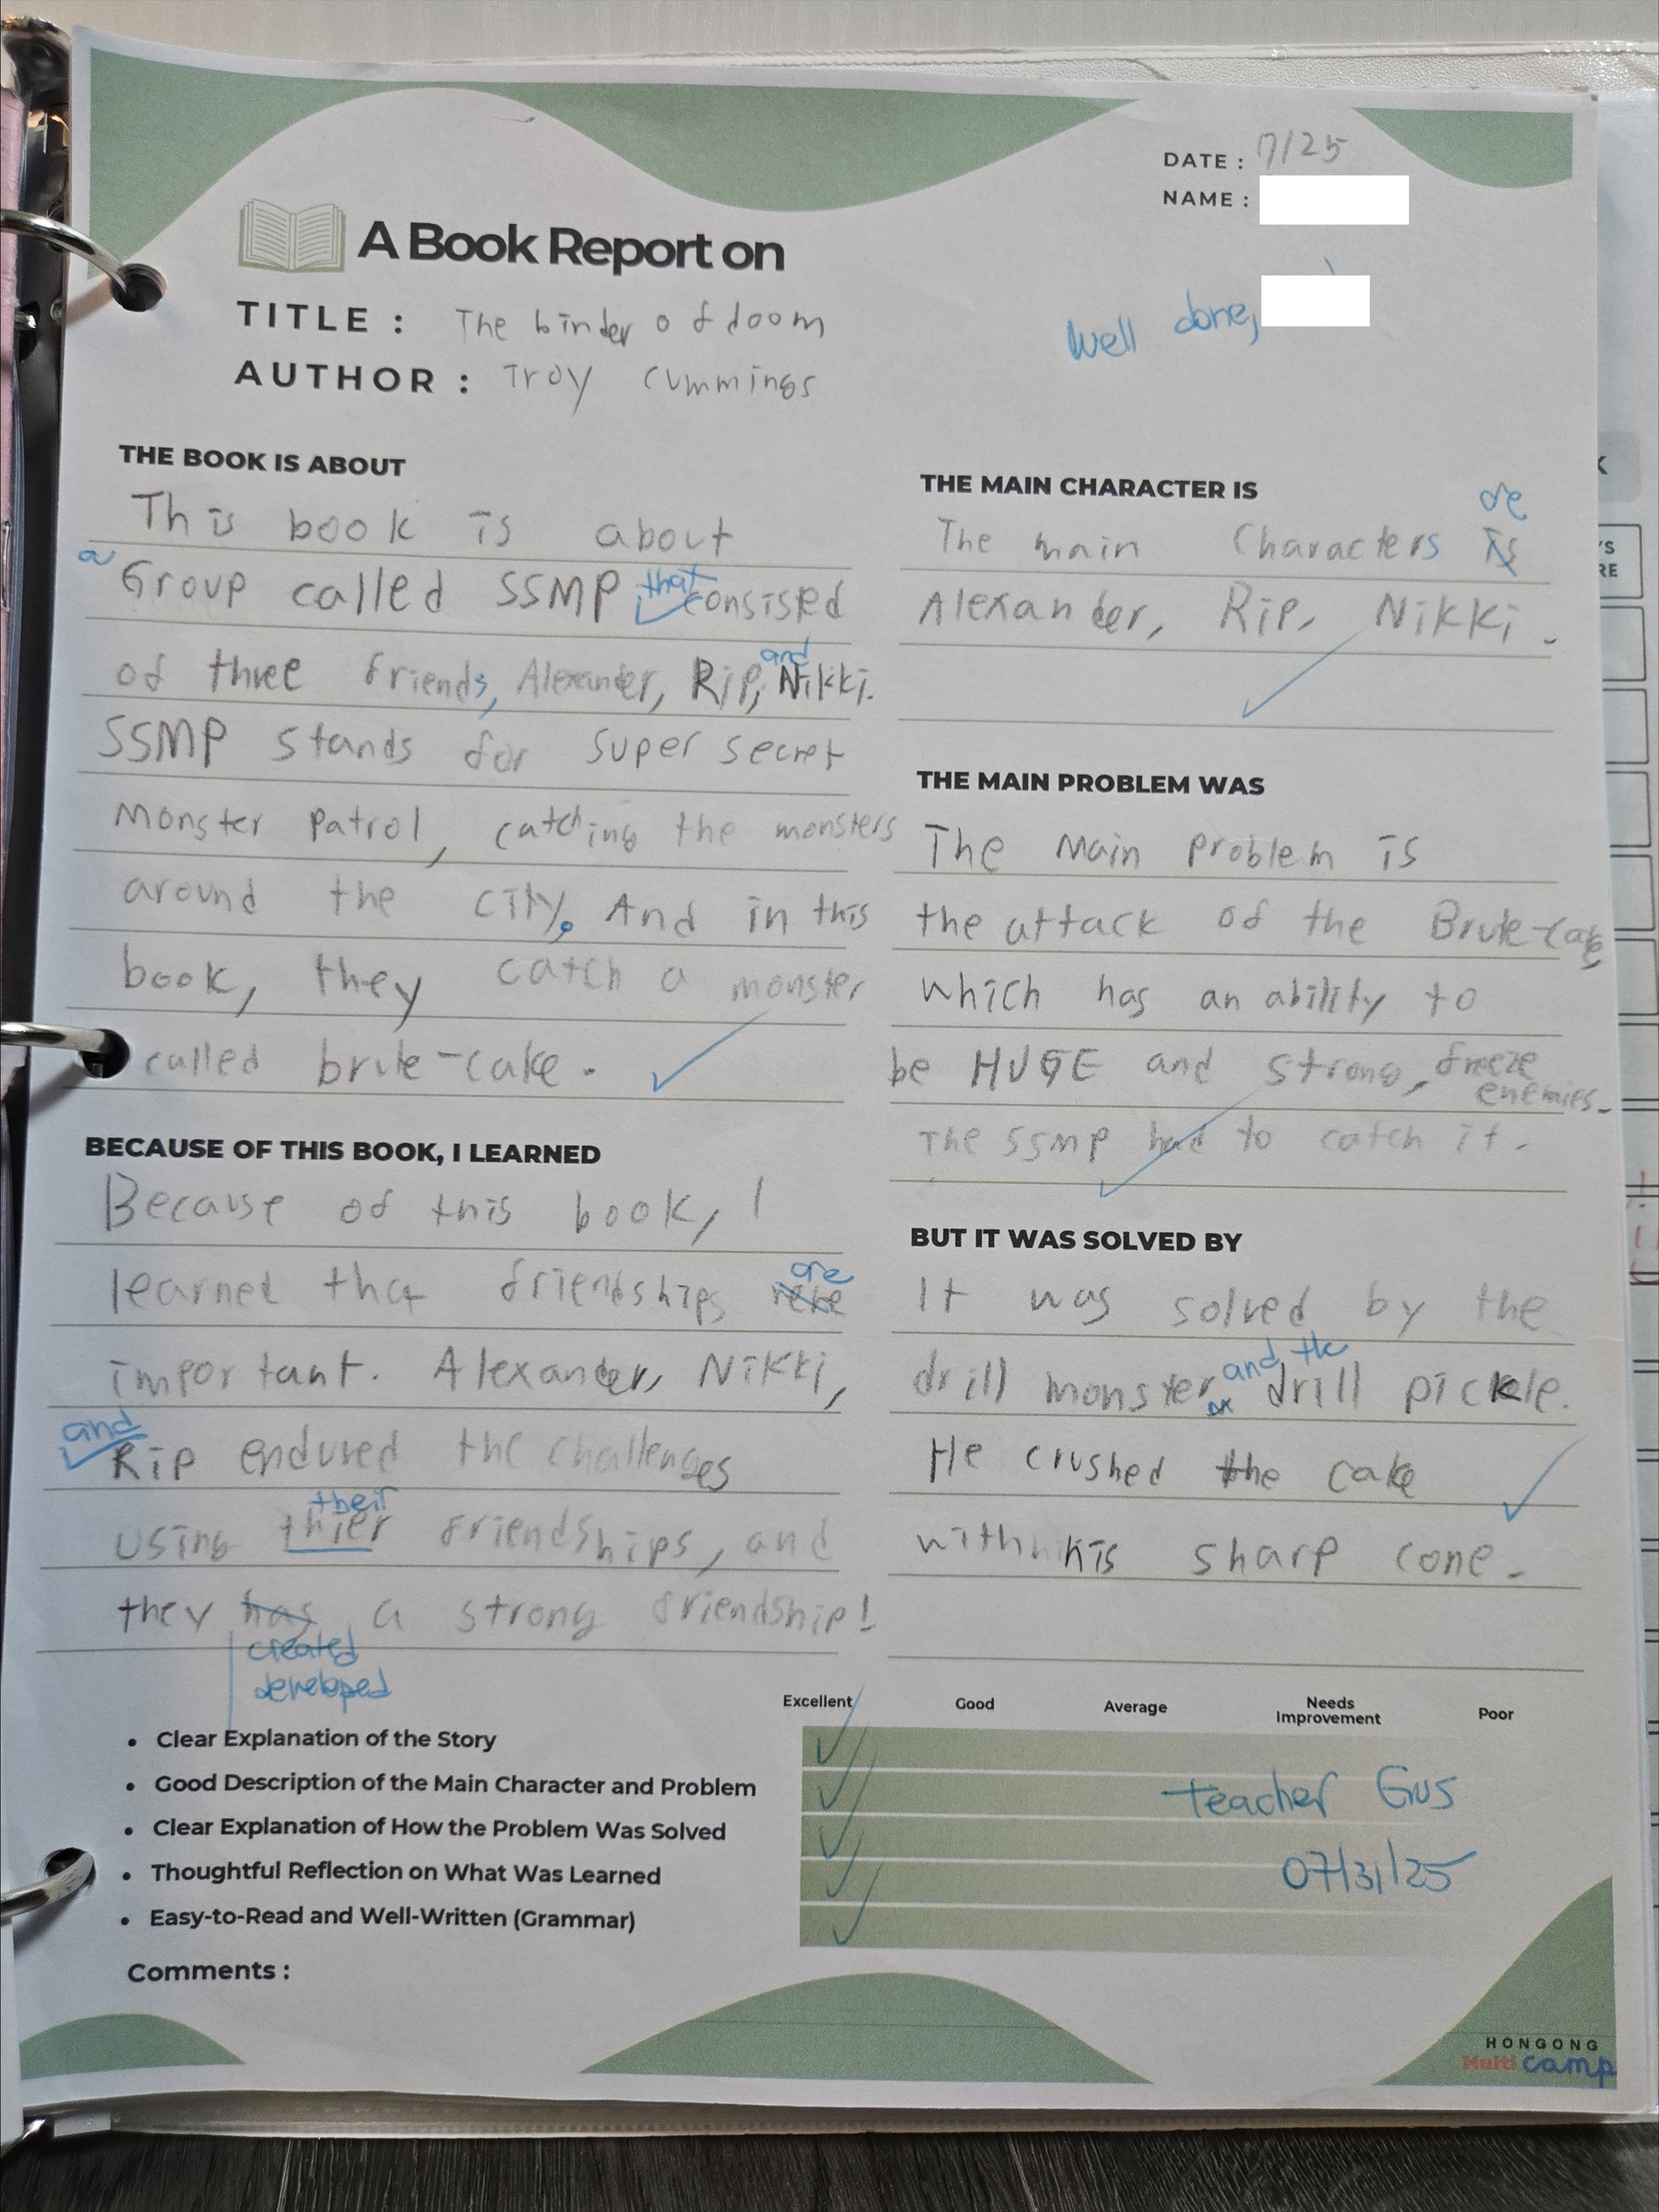 DATE : 7/25
NAME :
A Book Report on
well done,
TITLE : The binder of doom
AUTHOR : Troy Cummings
THE BOOK IS ABOUT
This book is about
a Group called SSMP that consisted
of three friends, Alexander, Rip, and Nikki.
SSMP stands for super secret
Monster Patrol, catching the monsters
around the city. And in this
book, they catch a monster
called brute-cake.
BECAUSE OF THIS BOOK, I LEARNED
Because of this book, I
are
learned that friendships were
important. Alexander, Nikki,
and
Rip endured the challenges
their
using thier friendships, and
they has a strong friendship!
created
developed
THE MAIN CHARACTER IS
are
The main Characters is
Alexander, Rip, Nikki.
THE MAIN PROBLEM WAS
The Main problem is
the attack of the Brute-cake,
which has an ability to
be HUGE and strong, freeze
enemies.
The SSMP had to catch it.
BUT IT WAS SOLVED BY
It was solved by the
and the
drill monster drill pickle.
He crushed the cake
with his sharp cone.
Excellent Good Average Needs Improvement Poor
• Clear Explanation of the Story
• Good Description of the Main Character and Problem
• Clear Explanation of How the Problem Was Solved
• Thoughtful Reflection on What Was Learned
• Easy-to-Read and Well-Written (Grammar)
teacher Gus
07/31/25
Comments :
HONGONG
Multi camp